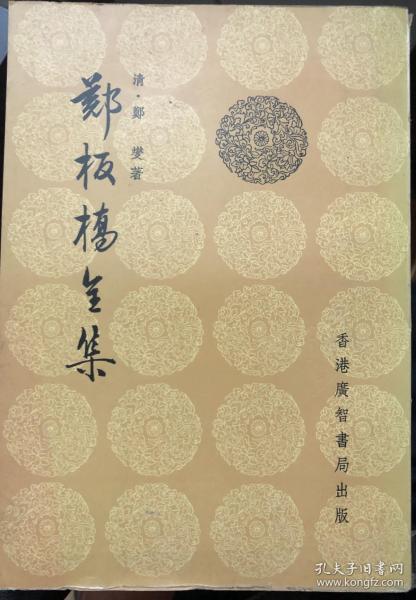 鄭板橋全集
清·鄭燮著
香港廣智書局出版
孔夫子旧书网
www.kongfz.com